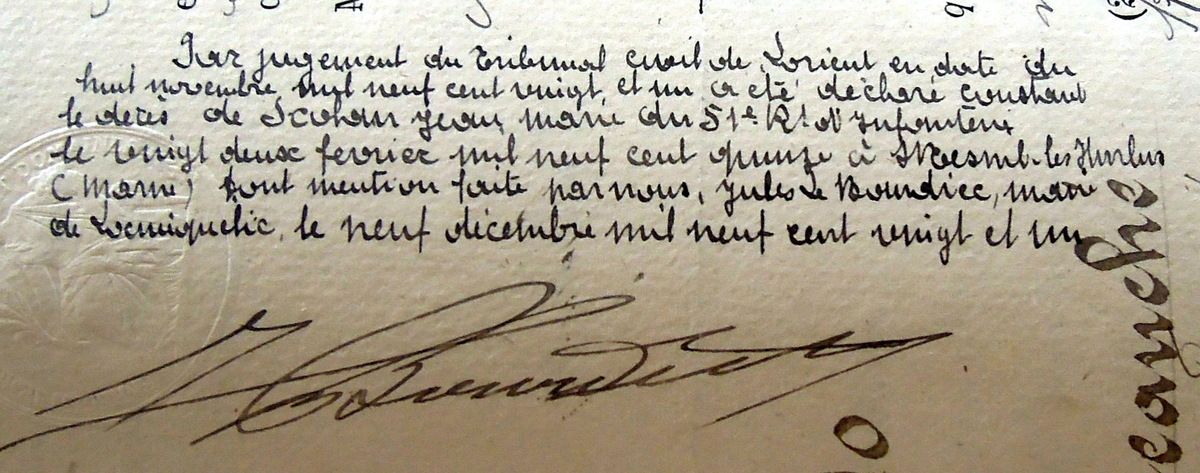 Par jugement du Tribunal civil de Lorient en date du
huit novembre mil neuf cent vingt et un a été déclaré constant
le décès de Scohan Jean, marie du 51e Rt d'Infanterie
le vingt deux fevrier mil neuf cent quinze à Mesnil-les-Hurlus
(Marne) Dont mention faite par nous, Jules Le Bourdiec, maire
de Locmiquelic, le neuf décembre mil neuf cent vingt et un